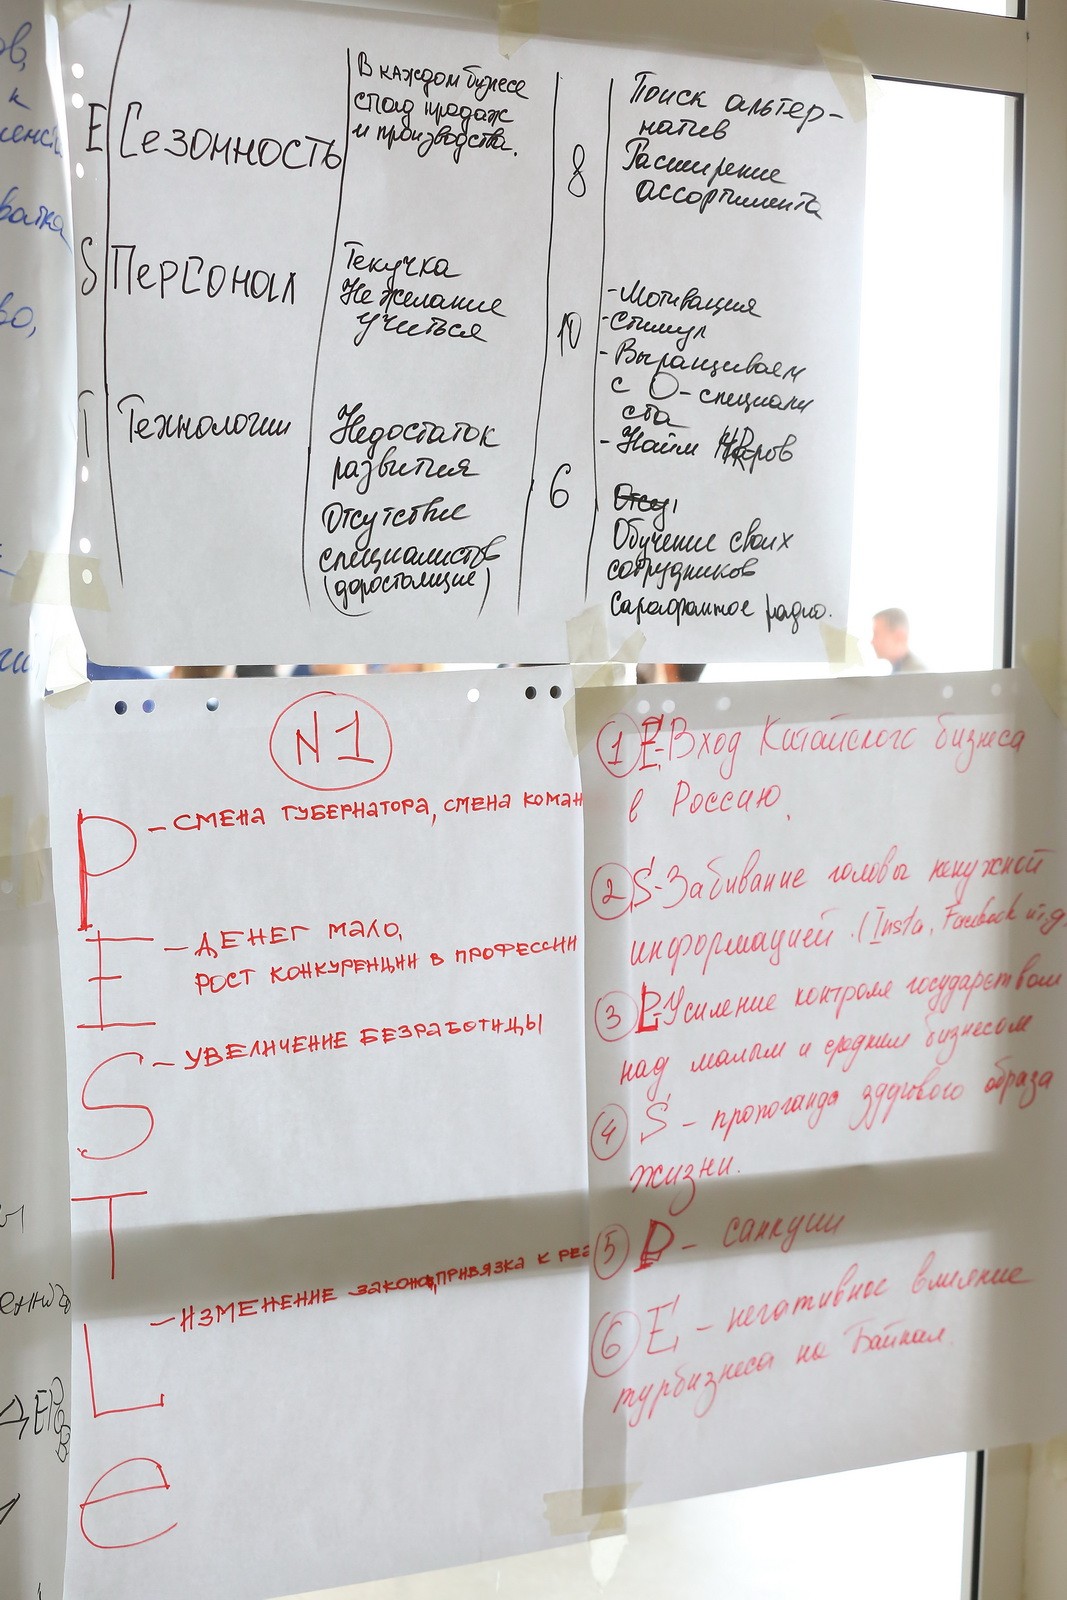 E Сезонность
В каждом бизнесе
спад продаж
и производства.
8
Поиск альтер-
натив
Расширение
ассортимента
S Персонал
Текучка
Не желание
учиться
10
- Мотивация
- Стимул
- Выращиваем
с О - специали
ста
- Найм
T Технологии
Недостаток
развития
Отсутствие
специалистов
(доростающие)
6
Обучение своих
сотрудников
Сарафанное радио.
N1
P - СМЕНА ГУБЕРНАТОРА, СМЕНА КОМАН
E - ДЕНЕГ МАЛО,
РОСТ КОНКУРЕНЦИИ В ПРОФЕССИИ
S - УВЕЛИЧЕНИЕ БЕЗРАБОТИЦЫ
T
L - ИЗМЕНЕНИЕ ЗАКОНОВ, ПРИВЯЗКА К РЕА
e
1 E - Вход Китайского бизнеса
в Россию.
2 S - Забивание головы ненужной
информацией. (Insta, Facebook и т.д
3 P - Усиление контроля государством
над малым и средним бизнесом
4 S - пропоганда здорового образа
жизни.
5 P - санкции
6 E - негативное влияние
турбизнеса на Байкал.